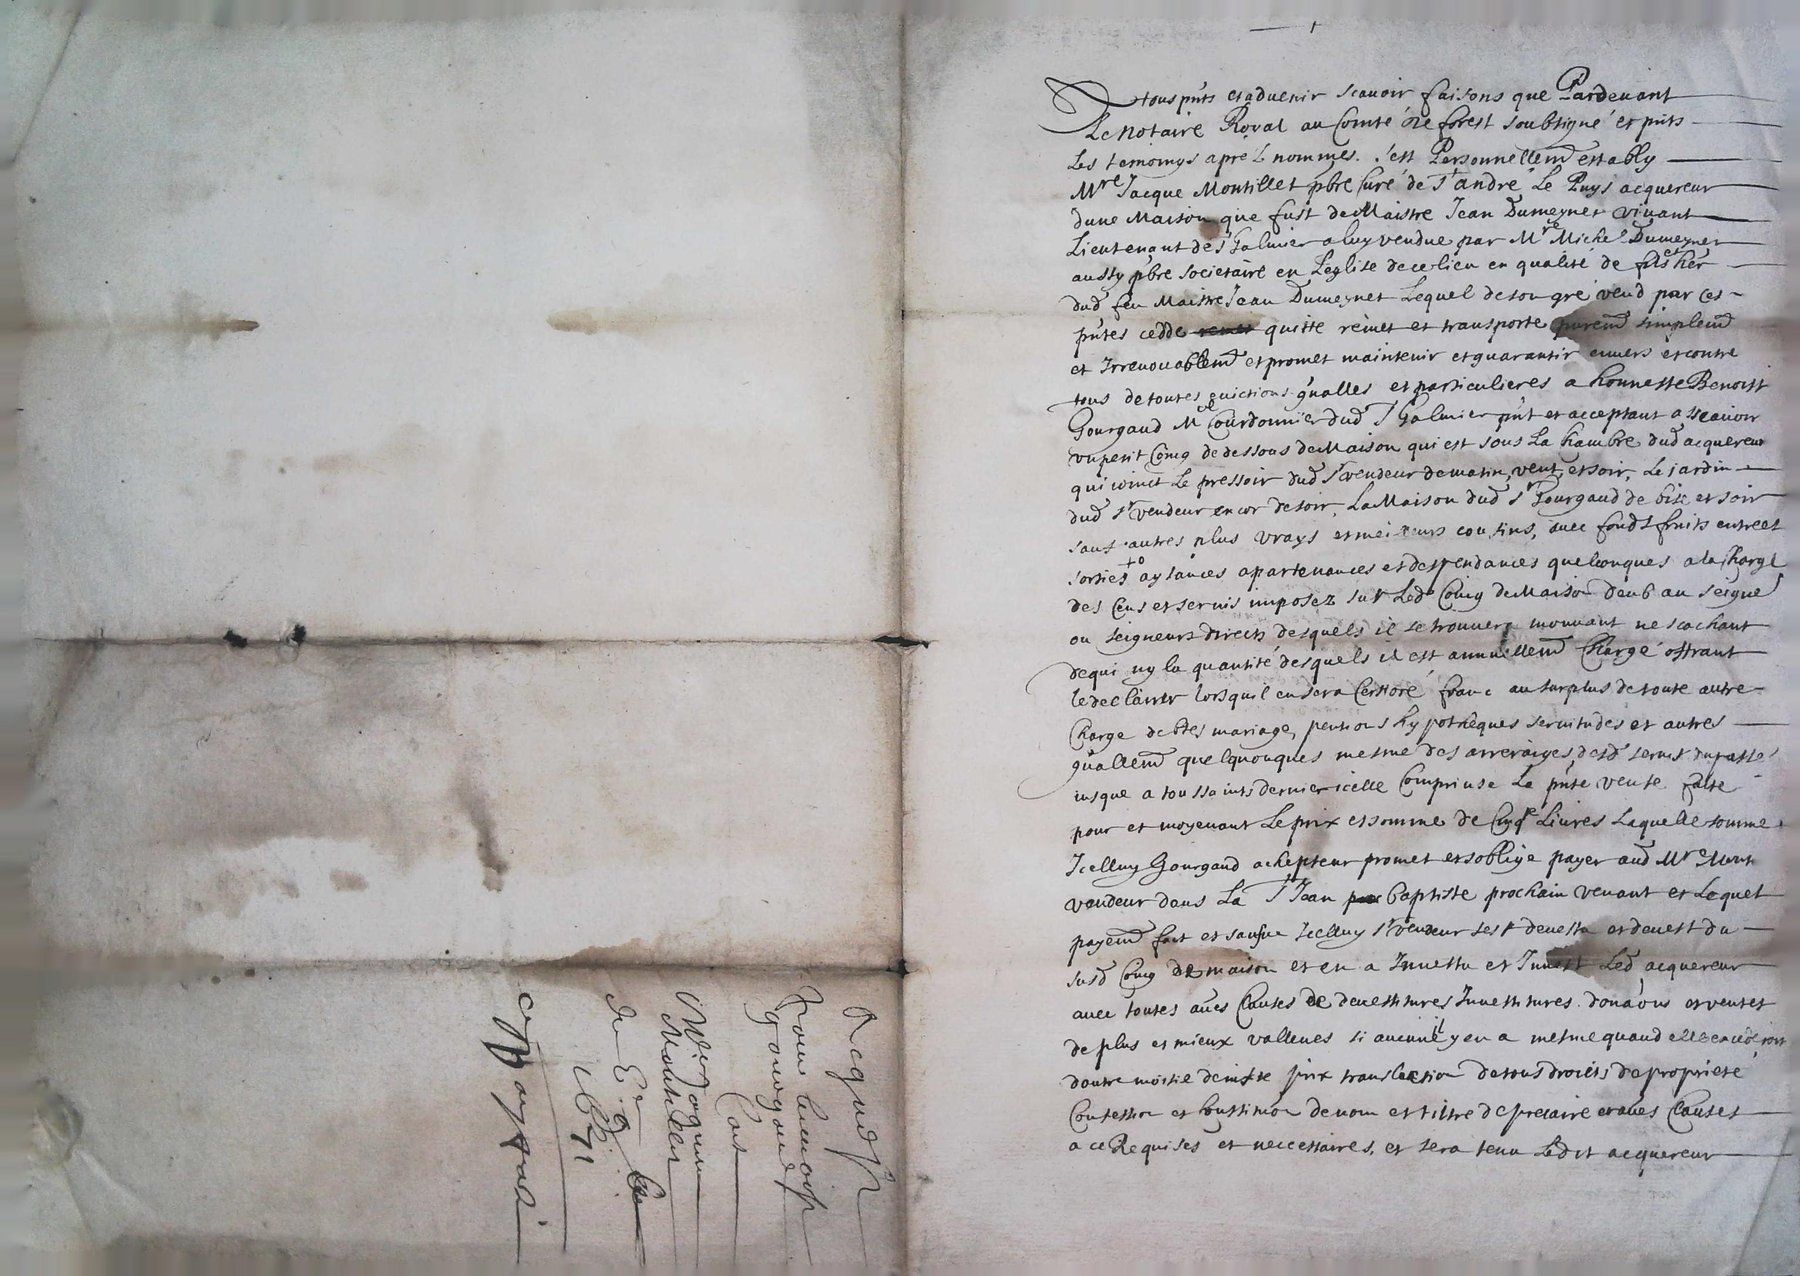 A tous pnts et advenir scavoir faisons que Pardevant
Le Notaire Royal au Comté de forest soubsigné et pnts
Les temoings apres nommes. s'est Personnellemt estably
Mre Jacque Montillet pbre Curé de St andré Le Puys acquereur
dune Maison que fust de Maistre Jean Dumeynet vivant
Lieutenant de St Galmier a luy vendue par Mre Michel Dumeynet
aussy pbre societaire en Leglise de ce lieu en qualité de fils et her
dud feu Maistre Jean Dumeynet Lequel de son gré vend par ces
pntes cedde quitte remet et transporte puremt simplemt
et Irrevocablemt et promet maintenir et guarantir envers et contre
tous de toutes evictions gnalles et particulieres a honneste Benoist
Gourgaud Mre Courdonnier dud St Galmier pnt et acceptant a scavoir
un petit Coing de dessous de Maison qui est sous La Chambre dud acquereur
qui joinct Le pressoir dud Sr vendeur de matin, vent et soir, Le jardin
dud Sr vendeur encor de soir, La Maison dud Sr Gourgaud de bize et soir
sauf autres plus vrays et meilleurs confins, avec fonds fruits entrees
sorties aysances apartenances et despendances quelconques a la Charge
des Cens et servis imposez sur Led Coing de Maison deub au seigneur
ou seigneurs directs desquels il se trouvera mouvant ne scachant
de qui ny la quantité desquels il est annuellemt Chargé offrant
le declairer lorsquil en sera Certioré franc au surplus de toute autre
Charge debtes mariage, pentions hypothèques servitudes et autres
gnallemt quelquonques mesme des arrerages desd servis du passé
jusque a toussaints dernier icelle Comprinse La pnte vente faite
pour et moyenant Le prix et somme de Livres Laquelle somme
Icelluy Gourgaud achepteur promet et soblige payer aud Mre Mont
vendeur dans La St Jean baptiste prochain venant et Lequel
payemt fait et Icelluy Sr vendeur sest devestu et devest du
susd Coing de maison et en a Investu et Invest Led acquereur
avec toutes aues Clauses de devestitures Investitures donaons et ventes
de plus et mieux vallues si aucune il y en a mesme quand elle excederoit
doutre moitié de juste prix translation de tous droicts de proprieté
Confession et Constituon de nom et tiltre de precaire et aues Clauses
a ce Requises et neccessaires, et sera tenu Ledit acquereur
Acquid St
pour benoist
gourgaud
Cont
Mre Jacques
Montillet
du
1671